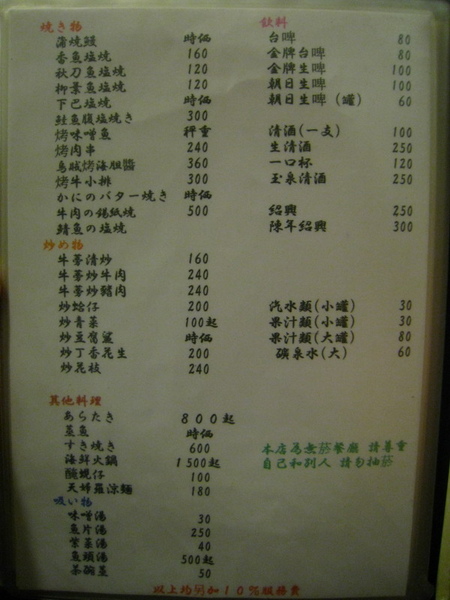 焼き物
蒲燒鰻 時価
香魚塩燒 160
秋刀魚塩燒 120
柳葉魚塩燒 120
下巴塩燒 時価
鮭魚腹塩燒き 300
烤味噌魚 秤重
烤肉串 240
烏賊烤海胆醬 360
烤牛小排 300
かにのバター燒き 時価
牛肉の錫紙燒 500
鯖魚の塩燒
炒め物
牛蒡清炒 160
牛蒡炒牛肉 240
牛蒡炒豬肉 240
炒蛤仔 200
炒青菜 100起
炒豆腐鯊 時価
炒丁香花生 200
炒花枝 240
其他料理
あらたき 800起
蒸魚 時価
すき燒き 600
海鮮火鍋 1500起
醃蜆仔 100
天婦羅涼麵 180
吸い物
味噌湯 30
魚片湯 250
紫菜湯 40
魚頭湯 500起
茶碗蒸 50
飲料
台啤 80
金牌台啤 80
金牌生啤 100
朝日生啤 100
朝日生啤(罐) 60
清酒(一支) 100
生清酒 250
一口杯 120
玉泉清酒 250
紹興 250
陳年紹興 300
汽水類(小罐) 30
果汁類(小罐) 30
果汁類(大罐) 80
礦泉水(大) 60
本店為無菸餐廳 請尊重
自己和別人 請勿抽菸
以上均另加10%服務費